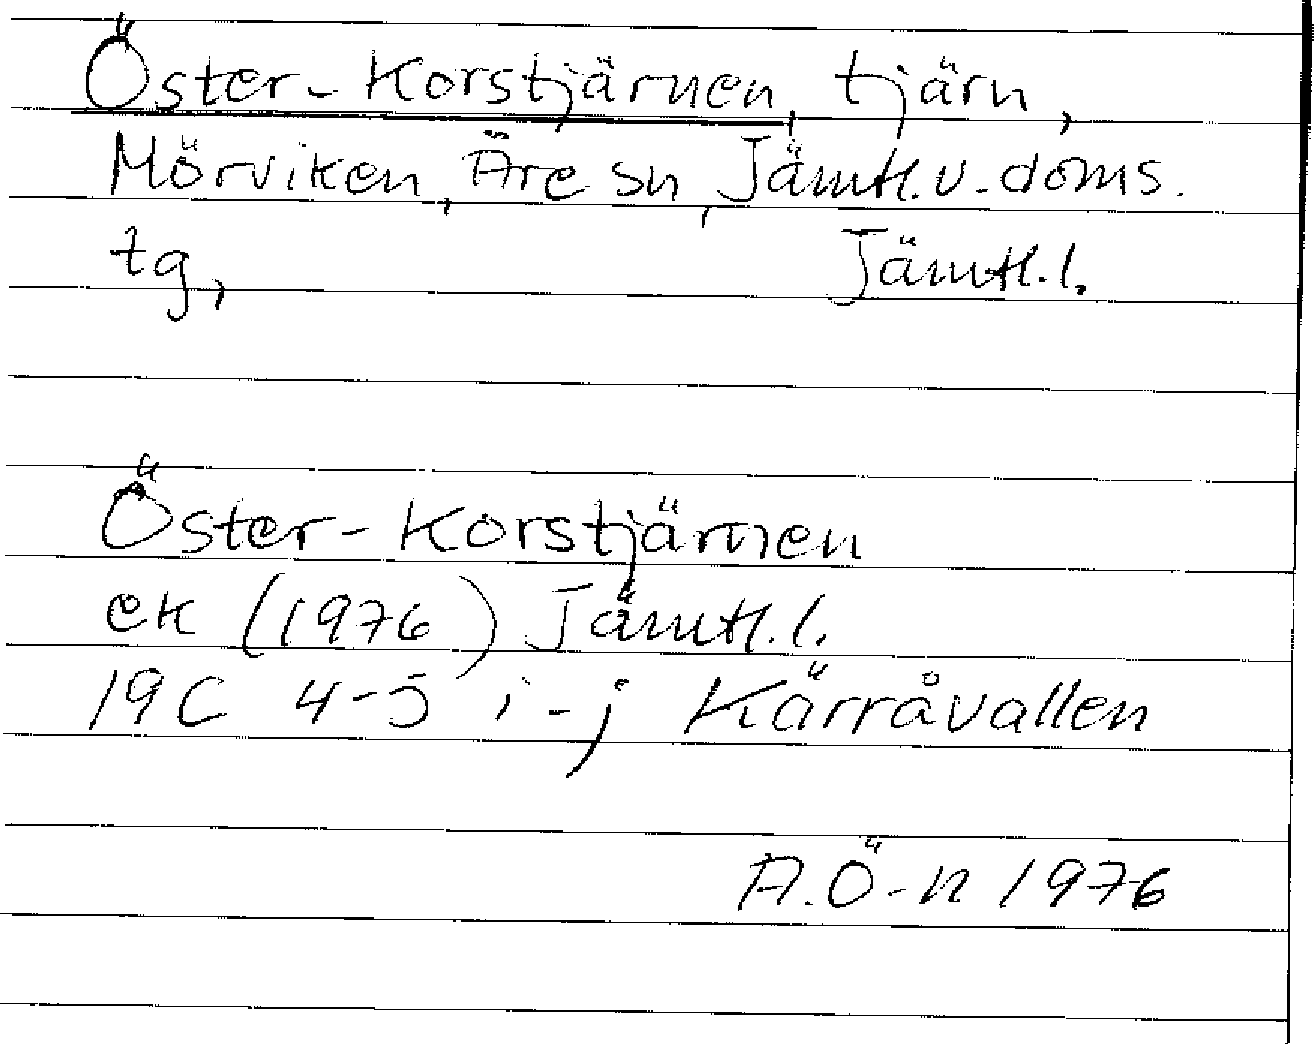 Öster-Korstjärnen, tjärn,
Mörviken, Åre sn, Jämtl.v.doms.
tg, Jämtl.l.
Öster-Korstjärnen
ek (1976) Jämtl.l.
19C 4-5 i-j Kärråvallen
A.Ö-n 1976